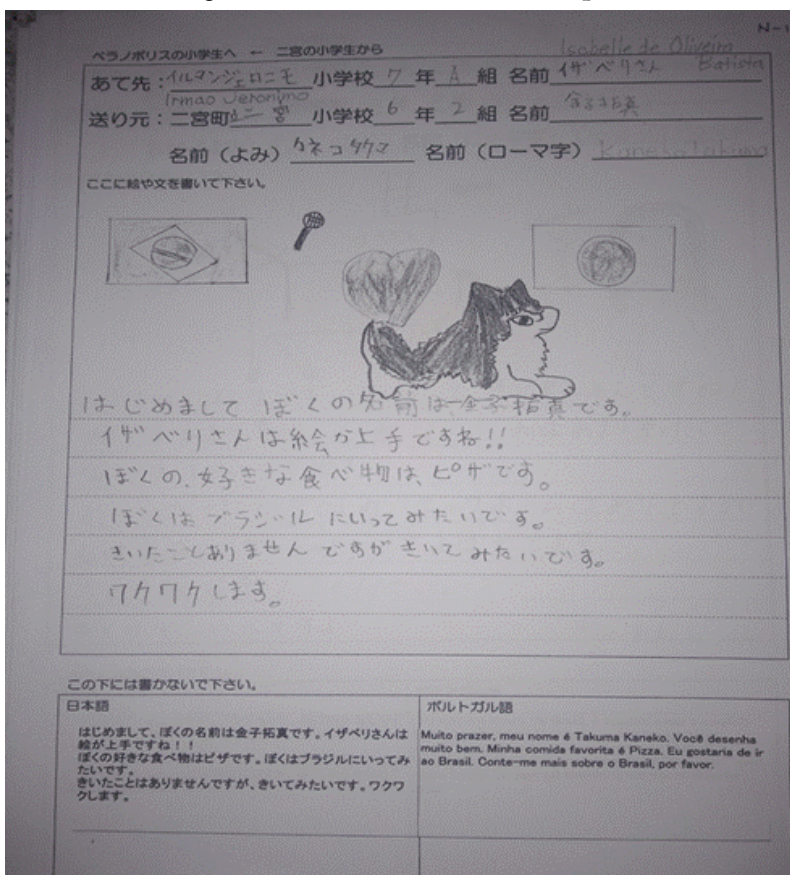 N-1
ベラノポリスの小学生へ ← 二宮の小学生から
Isobelle de Oliveira Batista
あて先：イルマンジェロニモ 小学校 7 年 A 組 名前 イザベリさん
Irmao Jeronimo
送り元：二宮町 二宮 小学校 6 年 2 組 名前 金子拓真
名前（よみ） カネコタクマ 名前（ローマ字） Kaneko Takuma
ここに絵や文を書いて下さい。
はじめまして ぼくの名前は、金子拓真です。
イザベリさんは絵が上手ですね!!
ぼくの、好きな食べ物は、ピザです。
ぼくは ブラジルにいってみたいです。
きいたことありませんですがきいてみたいです。
ワクワクします。
この下には書かないで下さい。
日本語
ポルトガル語
はじめまして、ぼくの名前は金子拓真です。イザベリさんは
絵が上手ですね！！
ぼくの好きな食べ物はピザです。ぼくはブラジルにいってみ
たいです。
きいたことはありませんですが、きいてみたいです。ワクワ
クします。
Muito prazer, meu nome é Takuma Kaneko. Você desenha
muito bem. Minha comida favorita é Pizza. Eu gostaria de ir
ao Brasil. Conte-me mais sobre o Brasil, por favor.